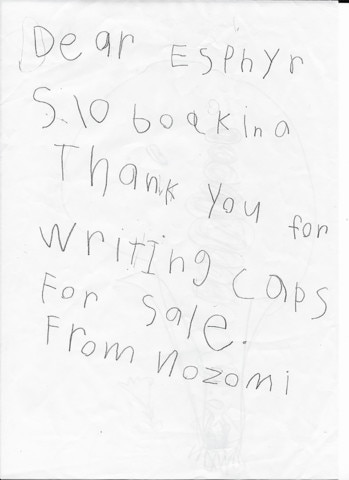 Dear Esphyr
Slo bodkina
Thank you for
writing caps
For sale.
From Nozomi